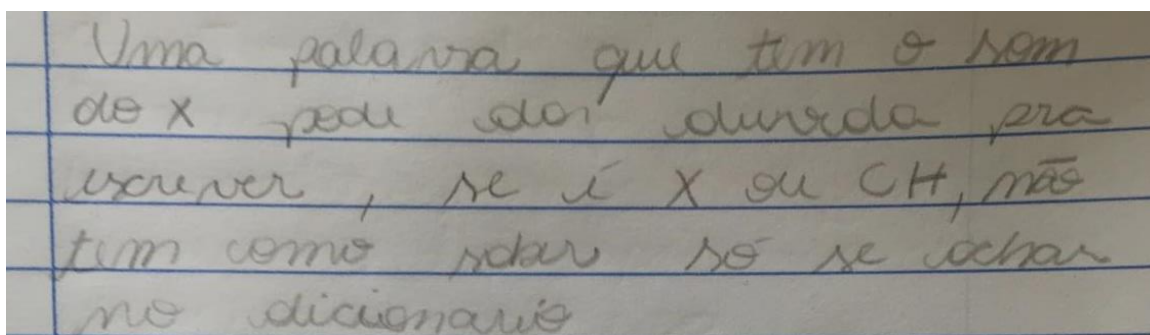 Uma palavra que tem o som
do X pode dar duvida pra
escrever, se é X ou CH, não
tem como saber só se achar
no dicionario